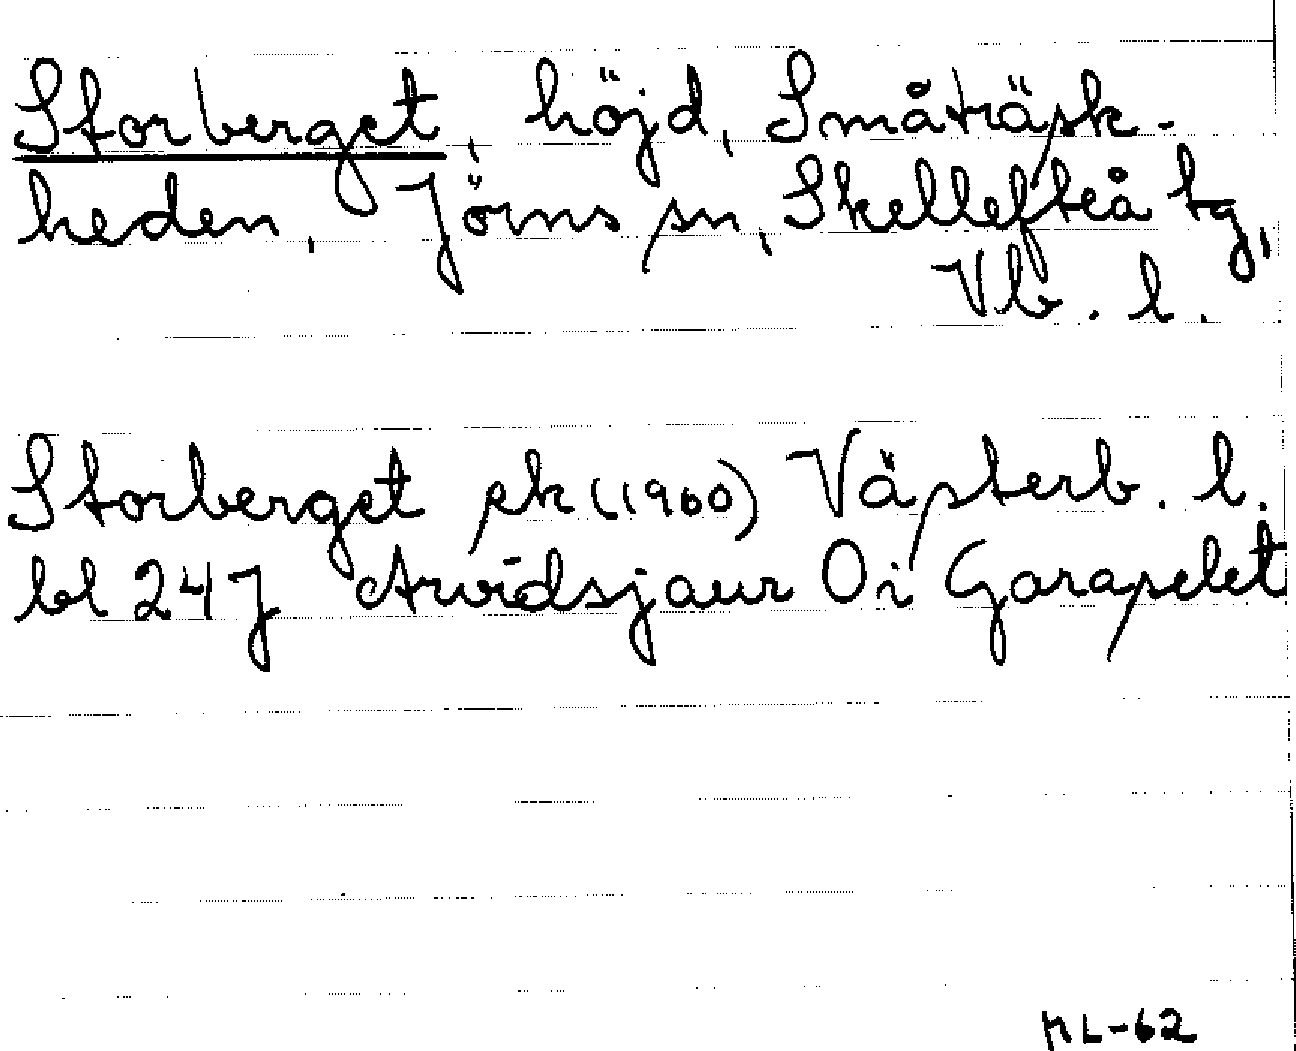 Storberget, höjd, Småträsk-
heden, Jörns sn, Skellefteå tg,
Vb. l.
Storberget ek (1960) Västerb. l.
bl 24 J Arvidsjaur Oi Garaselet
ML-62